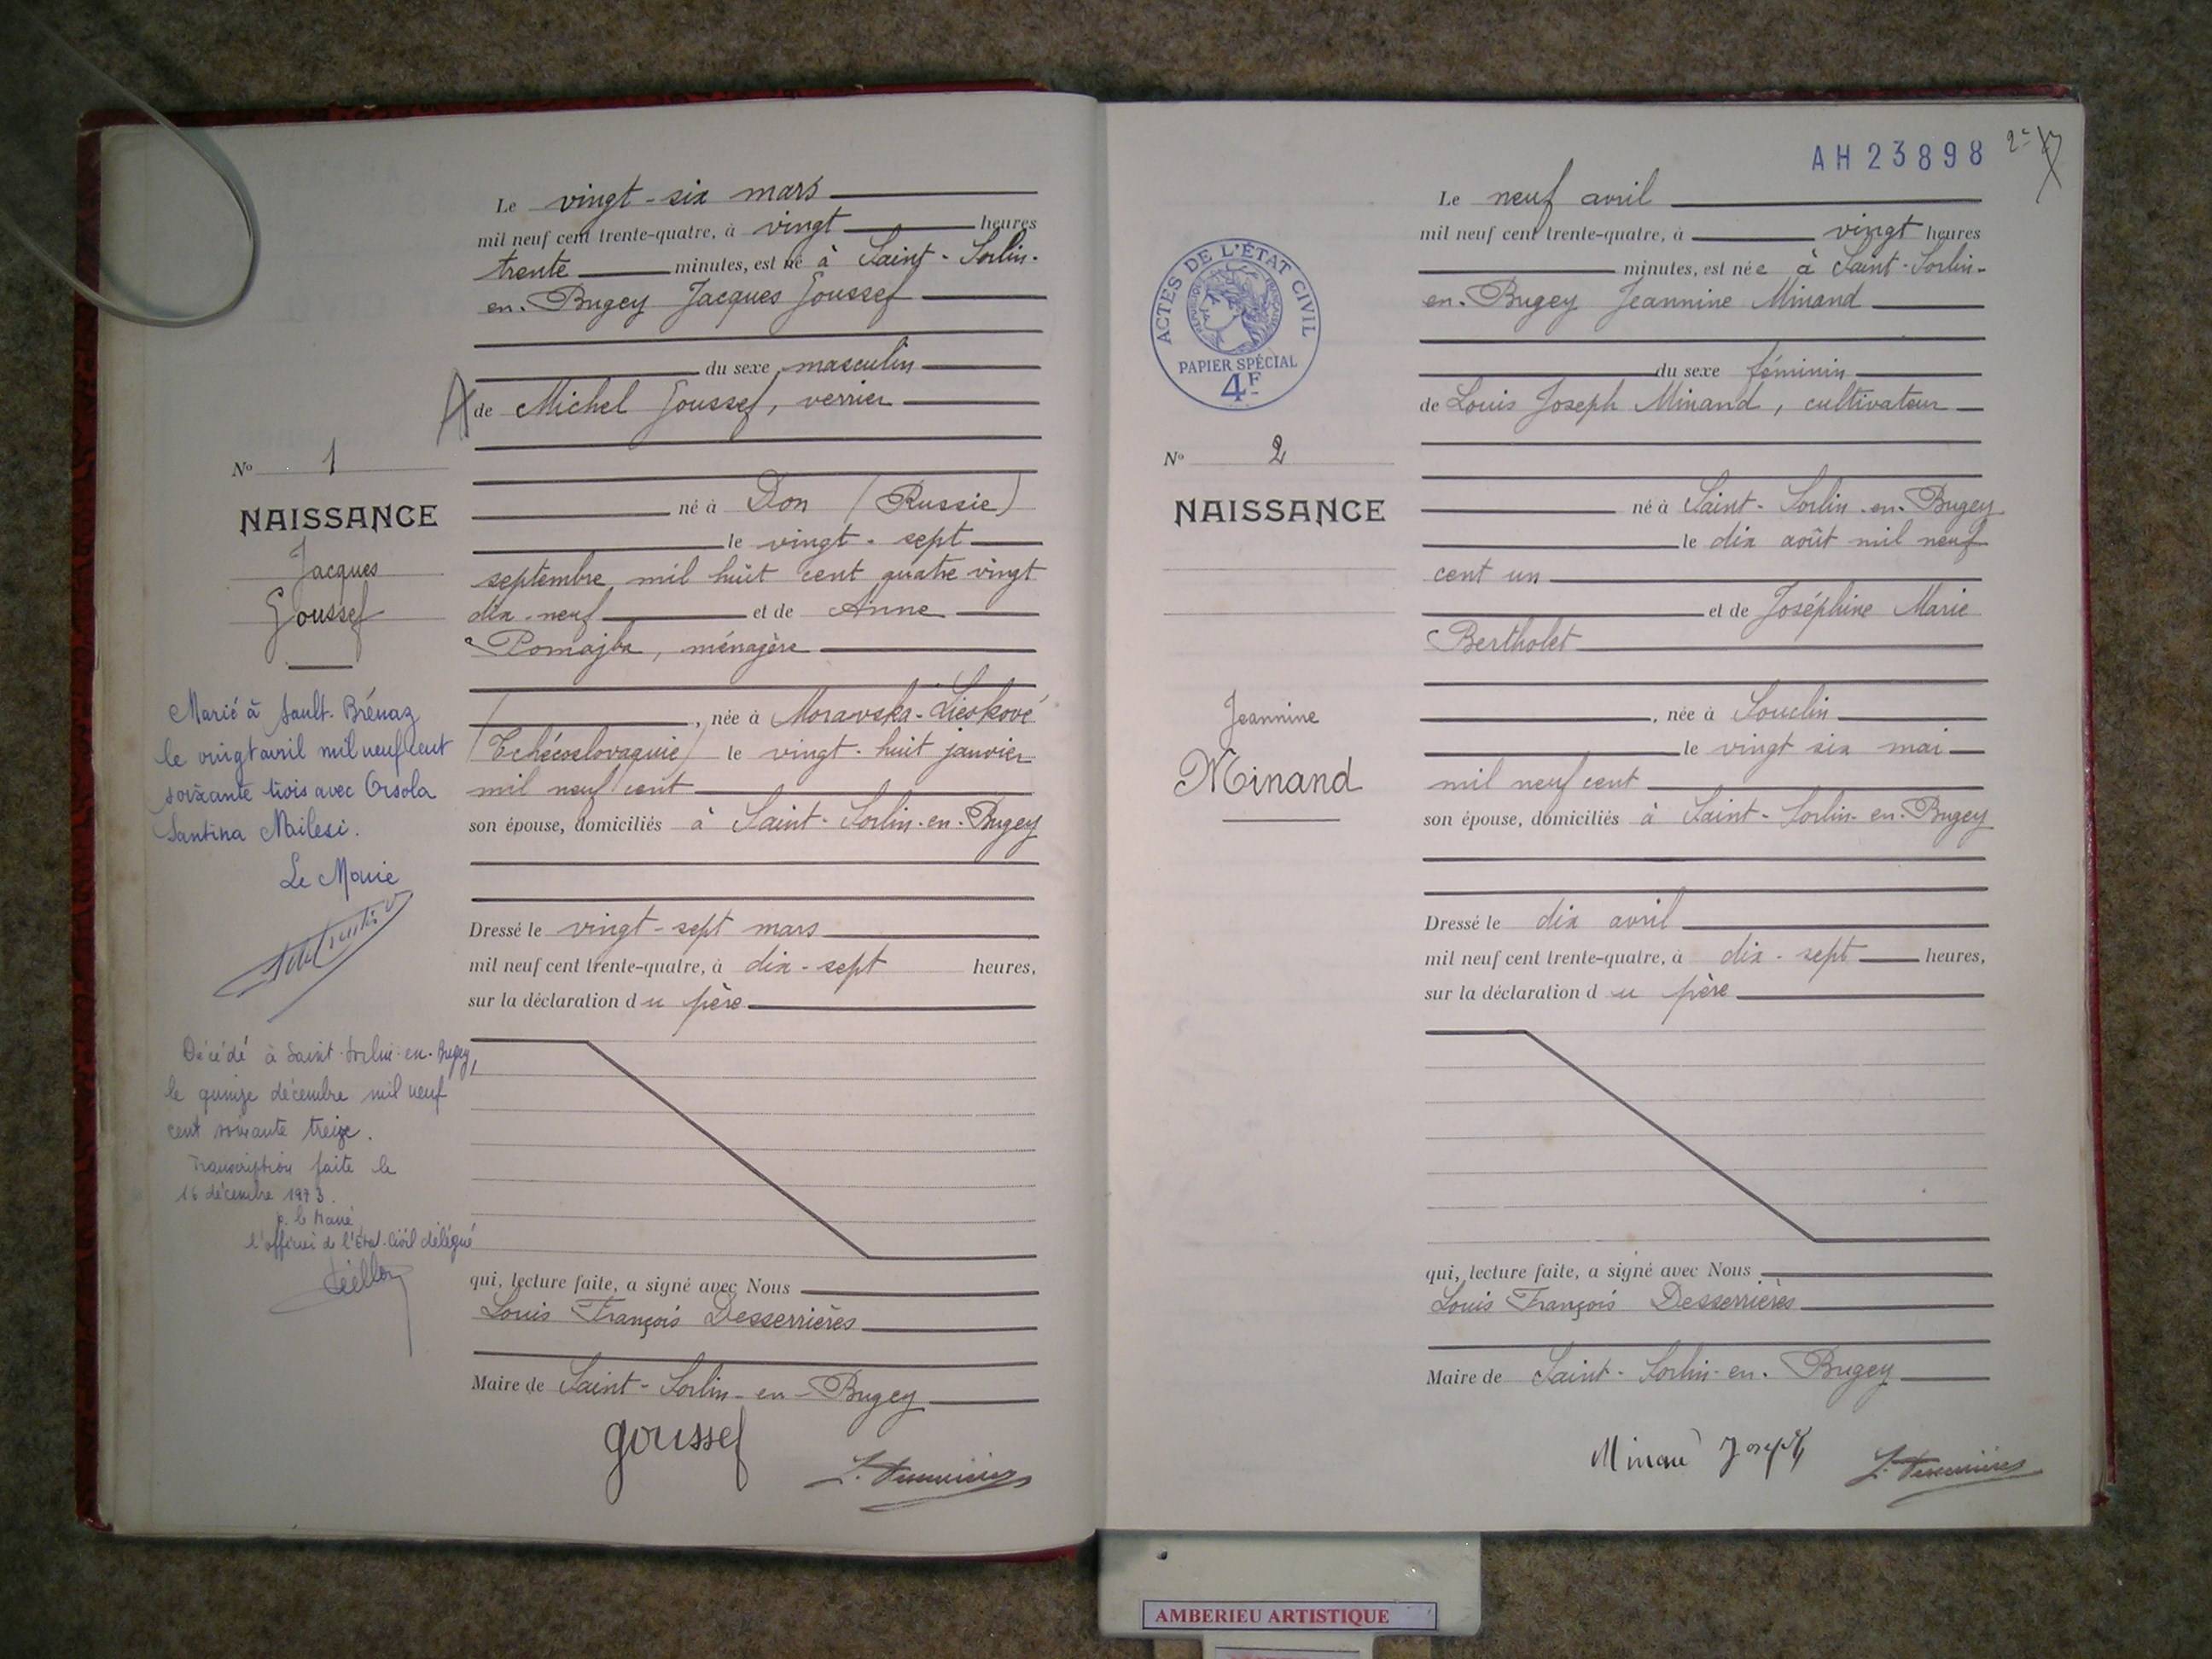 Le vingt-six mars
mil neuf cent trente-quatre, à vingt heures
trente minutes, est né à Saint-Sorlin-
en-Bugey Jacques Goussef
du sexe masculin
de Michel Goussef, verrier
né à Don (Russie)
le vingt-sept
septembre mil huit cent quatre vingt
dix-neuf et de Anne
Pomajba, ménagère
, née à Moravská-Lieskové
(Tchécoslovaquie) le vingt-huit janvier
mil neuf cent
son épouse, domiciliés à Saint-Sorlin-en-Bugey
Dressé le vingt-sept mars
mil neuf cent trente-quatre, à dix-sept heures,
sur la déclaration du père
qui, lecture faite, a signé avec Nous
Louis François Desserrières
Maire de Saint-Sorlin-en-Bugey
goussef
No 1
NAISSANCE
Jacques
Goussef
Marié à Sault-Brénaz
le vingt avril mil neuf cent
soixante trois avec Orsola
Santina Milesi.
Le Maire
Décédé à Saint-Sorlin-en-Bugey,
le quinze décembre mil neuf
cent soixante treize.
Transcription faite le
16 décembre 1973.
p. le Maire
l'officier de l'état-civil délégué
AH23898
ACTES DE L'ÉTAT CIVIL
RÉPUBLIQUE FRANÇAISE
PAPIER SPÉCIAL
4F
No 2
NAISSANCE
Jeannine
Minand
Le neuf avril
mil neuf cent trente-quatre, à vingt heures
minutes, est née à Saint-Sorlin-
en-Bugey Jeannine Minand
du sexe féminin
de Louis Joseph Minand, cultivateur
né à Saint-Sorlin-en-Bugey
le dix août mil neuf
cent un
et de Joséphine Marie
Bertholet
, née à Souclin
le vingt six mai
mil neuf cent
son épouse, domiciliés à Saint-Sorlin-en-Bugey
Dressé le dix avril
mil neuf cent trente-quatre, à dix-sept heures,
sur la déclaration du père
qui, lecture faite, a signé avec Nous
Louis François Desserrières
Maire de Saint-Sorlin-en-Bugey
Minand Joseph
AMBERIEU ARTISTIQUE